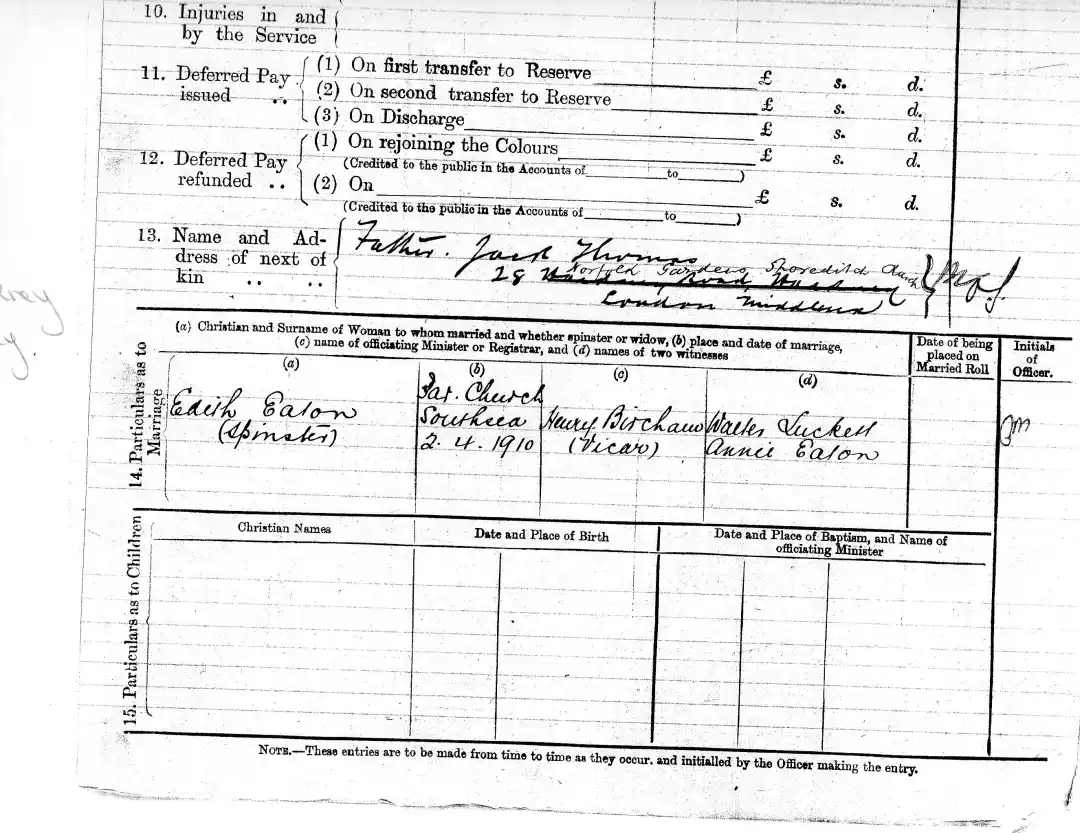 10. Injuries in and
by the Service
11. Deferred Pay
issued ..
(1) On first transfer to Reserve £ s. d.
(2) On second transfer to Reserve £ s. d.
(3) On Discharge £ s. d.
12. Deferred Pay
refunded ..
(1) On rejoining the Colours £ s. d.
(Credited to the public in the Accounts of to )
(2) On £ s. d.
(Credited to the public in the Accounts of to )
13. Name and Ad-
dress of next of
kin .. ..
Father. Jack Thomas
Norfolk Gardens, Shoreditch Church
28 Road,
London Middlesex
14. Particulars as to
Marriage
(a) Christian and Surname of Woman to whom married and whether spinster or widow, (b) place and date of marriage,
(c) name of officiating Minister or Registrar, and (d) names of two witnesses
Date of being
placed on
Married Roll
Initials
of
Officer.
(a) (b) (c) (d)
Edith Eaton
(Spinster)
Par. Church
Southsea
2. 4. 1910
Henry Bircham
(Vicar)
Walter Luckett
Annie Eaton
15. Particulars as to Children
Christian Names
Date and Place of Birth
Date and Place of Baptism, and Name of
officiating Minister
NOTE.—These entries are to be made from time to time as they occur, and initialled by the Officer making the entry.